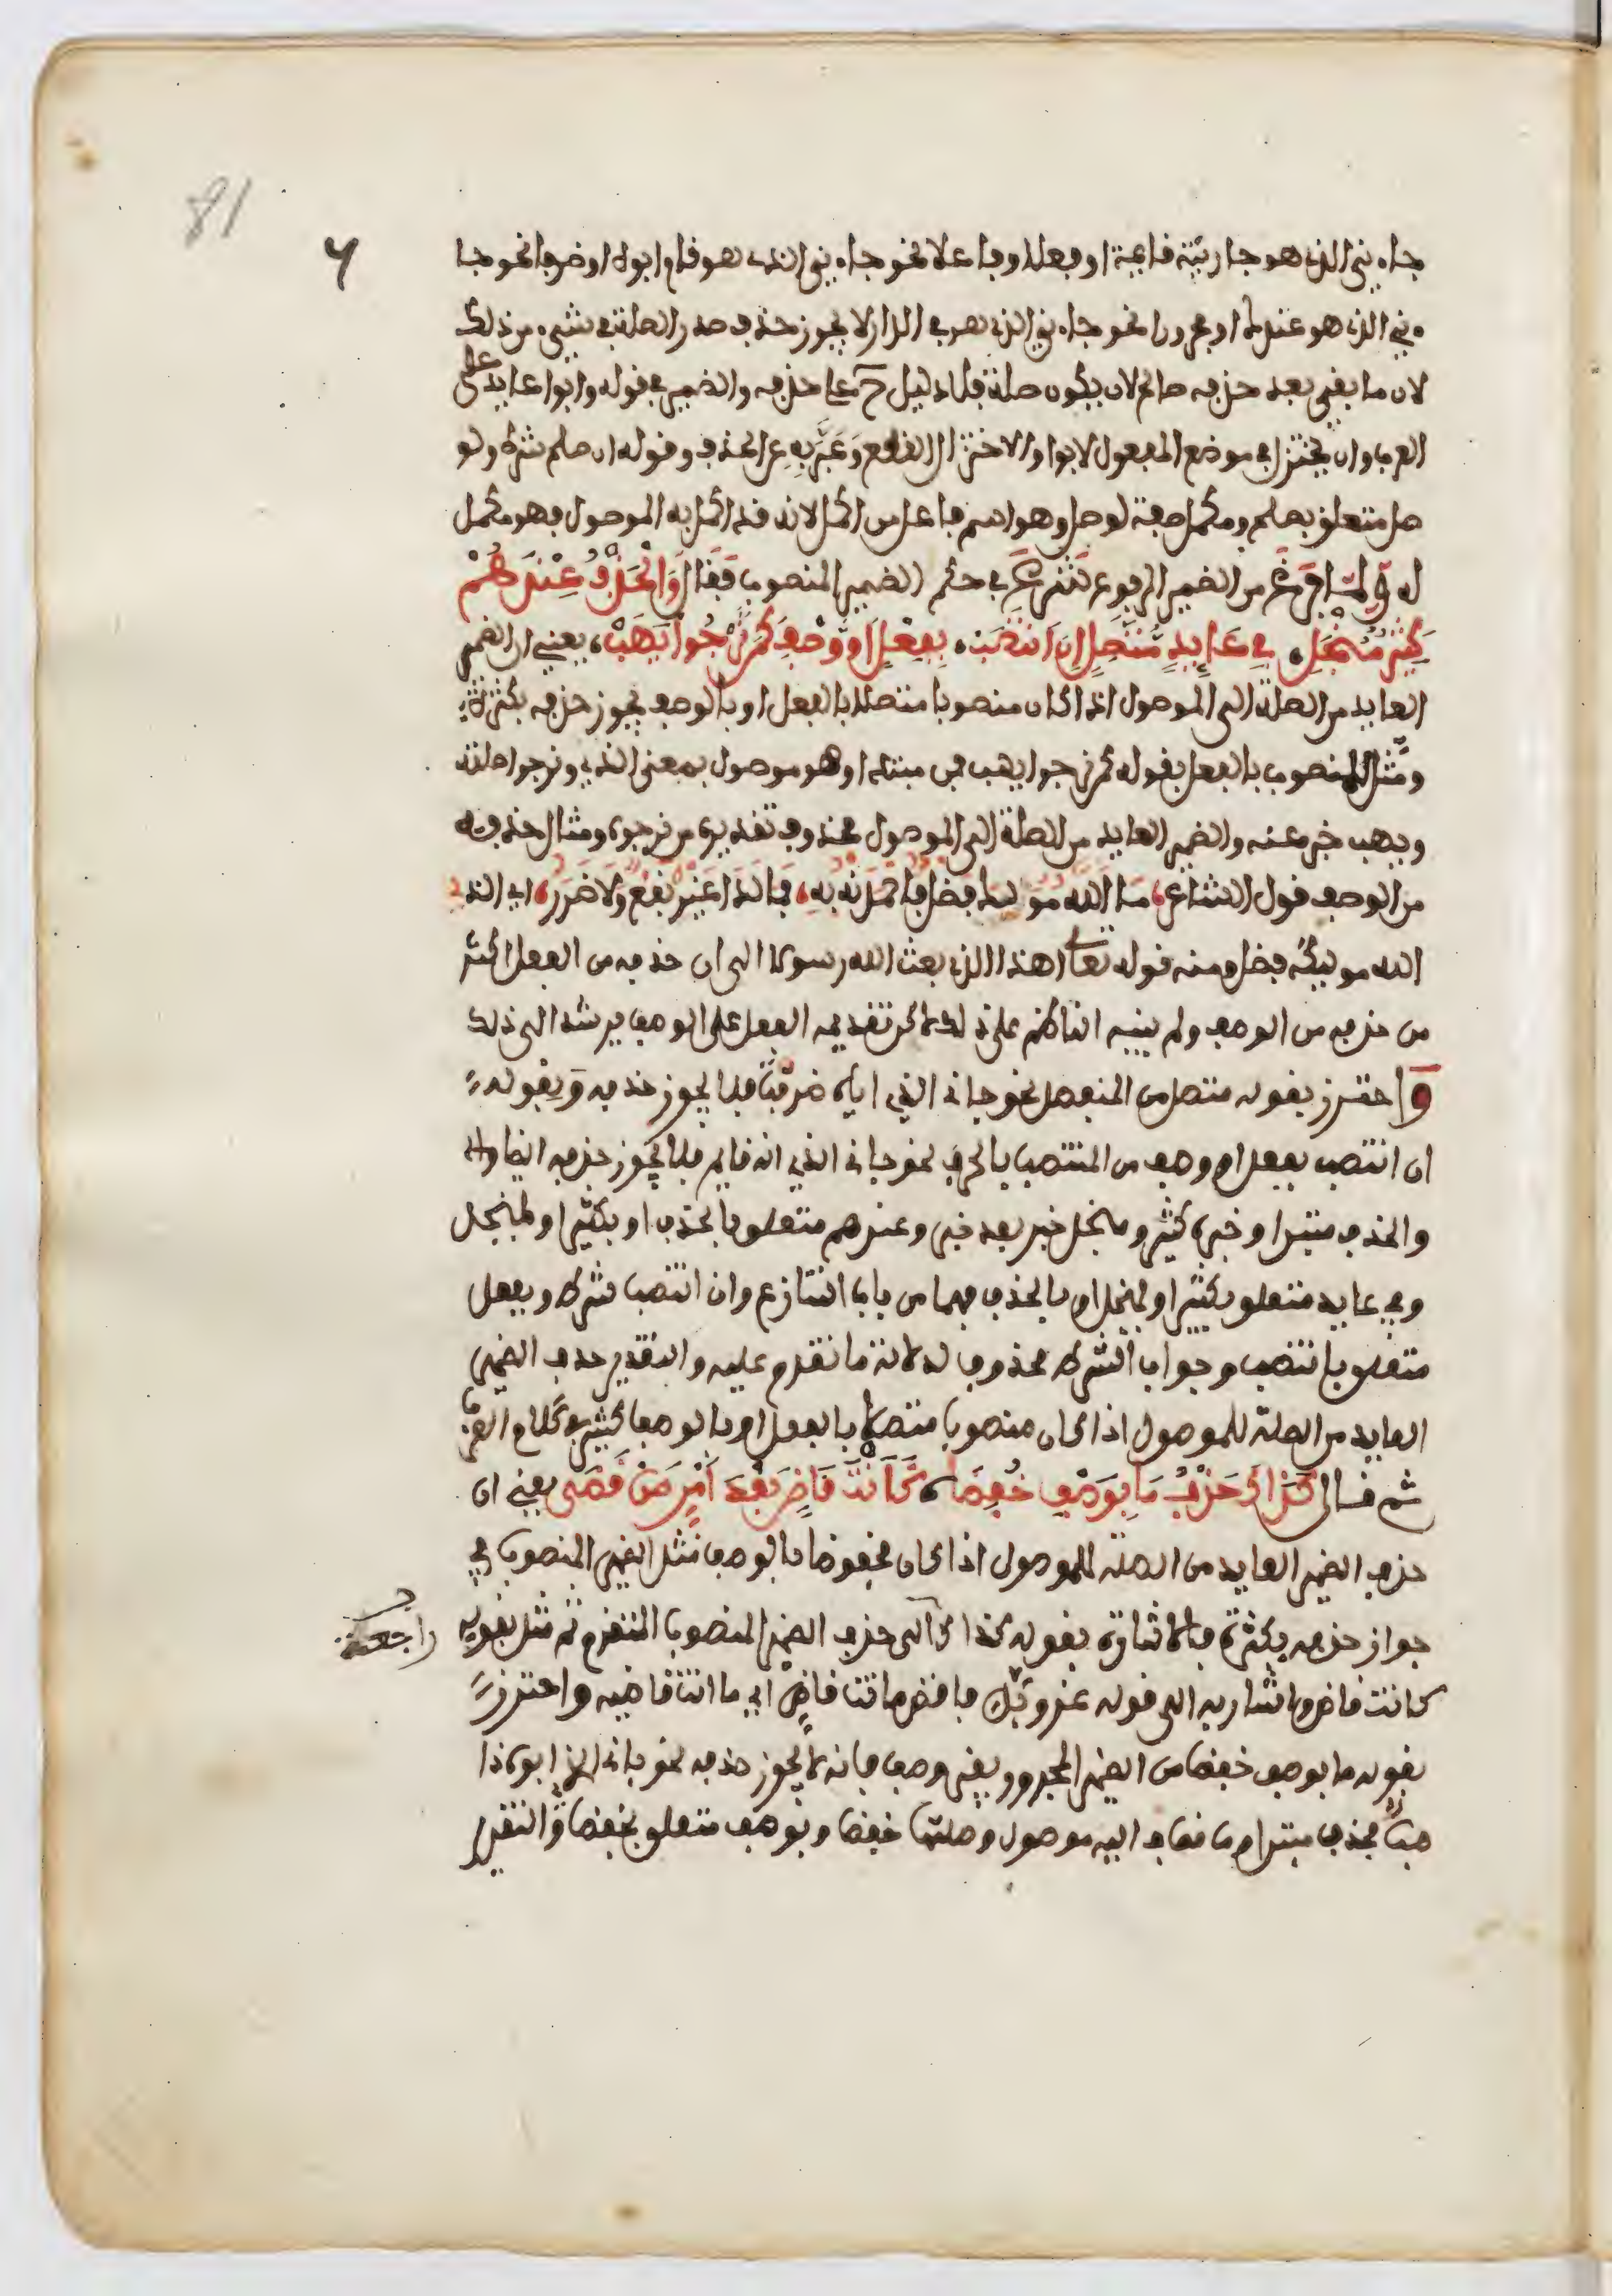 81
جاءني الذي هو جاريته قائمة او فعلا وفاعلا نحو جاءني الذي هو قام ابوه او ظرفا نحو جا
ءني الذي هو عندك او مجرورا نحو جاءني الذي هو في الدار لا يجوز حذف صدر الصلة في شيء من ذلك
لان ما بقي بعد حذفه صالح لان يكون صلة فلا دليل ح على حذفه والضمير في قوله وابوا عايد على
العرب وان يختزل في موضع المفعول لابوا والاختزال القطع وعبر به عن الحذف وقوله ان صلح شرط ولو
صل متعلق بصلح ومكمل صفة لوصل وهو اسم فاعل من اكمل لانه قد اكمل به الموصول فهو مكمل
له ولما فرغ من الضمير المرفوع شرع في حكم الضمير المنصوب فقال والحذف عندهم
كثير منجلي في عايد متصل ان انتصب بفعل او وصف كمن نرجوا يهب يعني ان الضمير
العايد من الصلة الى الموصول اذا كان منصوبا متصلا بالفعل او بالوصف يجوز حذفه بكثرة
ومثل للمنصوب بالفعل بقوله كمن نرجوا يهب فمن مبتدا وهو موصول بمعنى الذي ونرجوا صلته
ويهب خبر عنه والضمير العايد من الصلة الى الموصول محذوف تقديره من نرجوه ومثال حذفه
من الوصف قول الشاعر ما الله موليك فضل فاحمدنه به فما لدا غيره نفع ولا ضرر اي الذي
الله موليكه فضل ومنه قوله تعالى اهذا الذي بعث الله رسولا الى ان حذفه من الفعل اكثر
من حذفه من الوصف ولم ينبه الناظم على ذلك لاكن تقديمه الفعل على الوصف يرشد الى ذلك
واحترز بقوله متصل من المنفصل نحو جاءني الذي اياه ضربت فلا يجوز حذفه وبقوله
ان انتصب بفعل او وصف من المنتصب بالحرف نحو جاءني الذي انه قايم فلا يجوز حذفه ايضا
والحذف مبتدا وخبره كثير ومنجل خبر بعد خبر وعندهم متعلق بالحذف او بكثير او لمنجل
وفي عايد متعلق بكثير او لمنجل او بالحذف فهما من باب التنازع وان انتصب شرط وبفعل
متعلق بانتصب وجواب الشرط محذوف لدلالة ما تقدم عليه والتقدير حذف الضمير
العايد من الصلة للموصول اذا كان منصوبا متصلا بالفعل او بالوصف كثير في كلام العرب
ثم قال كذاك حذف ما بوصف خفضا كانت قاض بعد امر من قضى يعني ان
حذف الضمير العايد من الصلة للموصول اذا كان مخفوضا بالوصف مثل الضمير المنصوب في
جواز حذفه بكثرة فالاشارة بقوله كذاك الى حذف الضمير المنصوب المتقدم ثم مثل بقوله
راجعة
كانت قاض واشار به الى قوله عز وجل فاقض ما انت قاض اي ما انت قاضيه واحترز
بقوله ما بوصف خفض من الضمير المجرور بغير وصف فانه لا يجوز حذفه نحو جاءني الذي ابوه ذا
هب فحذف مبتدا وما مضاف اليه موصول وصلتها خفضا وبوصف متعلق بخفضا والتقدير